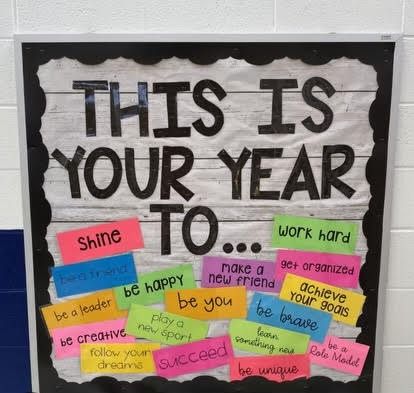 THIS IS
YOUR YEAR
TO...
shine
work hard
be a friend
be happy
make a
new friend
get organized
be a leader
be you
achieve
your goals
be creative
play a
new sport
be brave
follow your
dreams
succeed
learn
something new
be a
Role Model
be unique